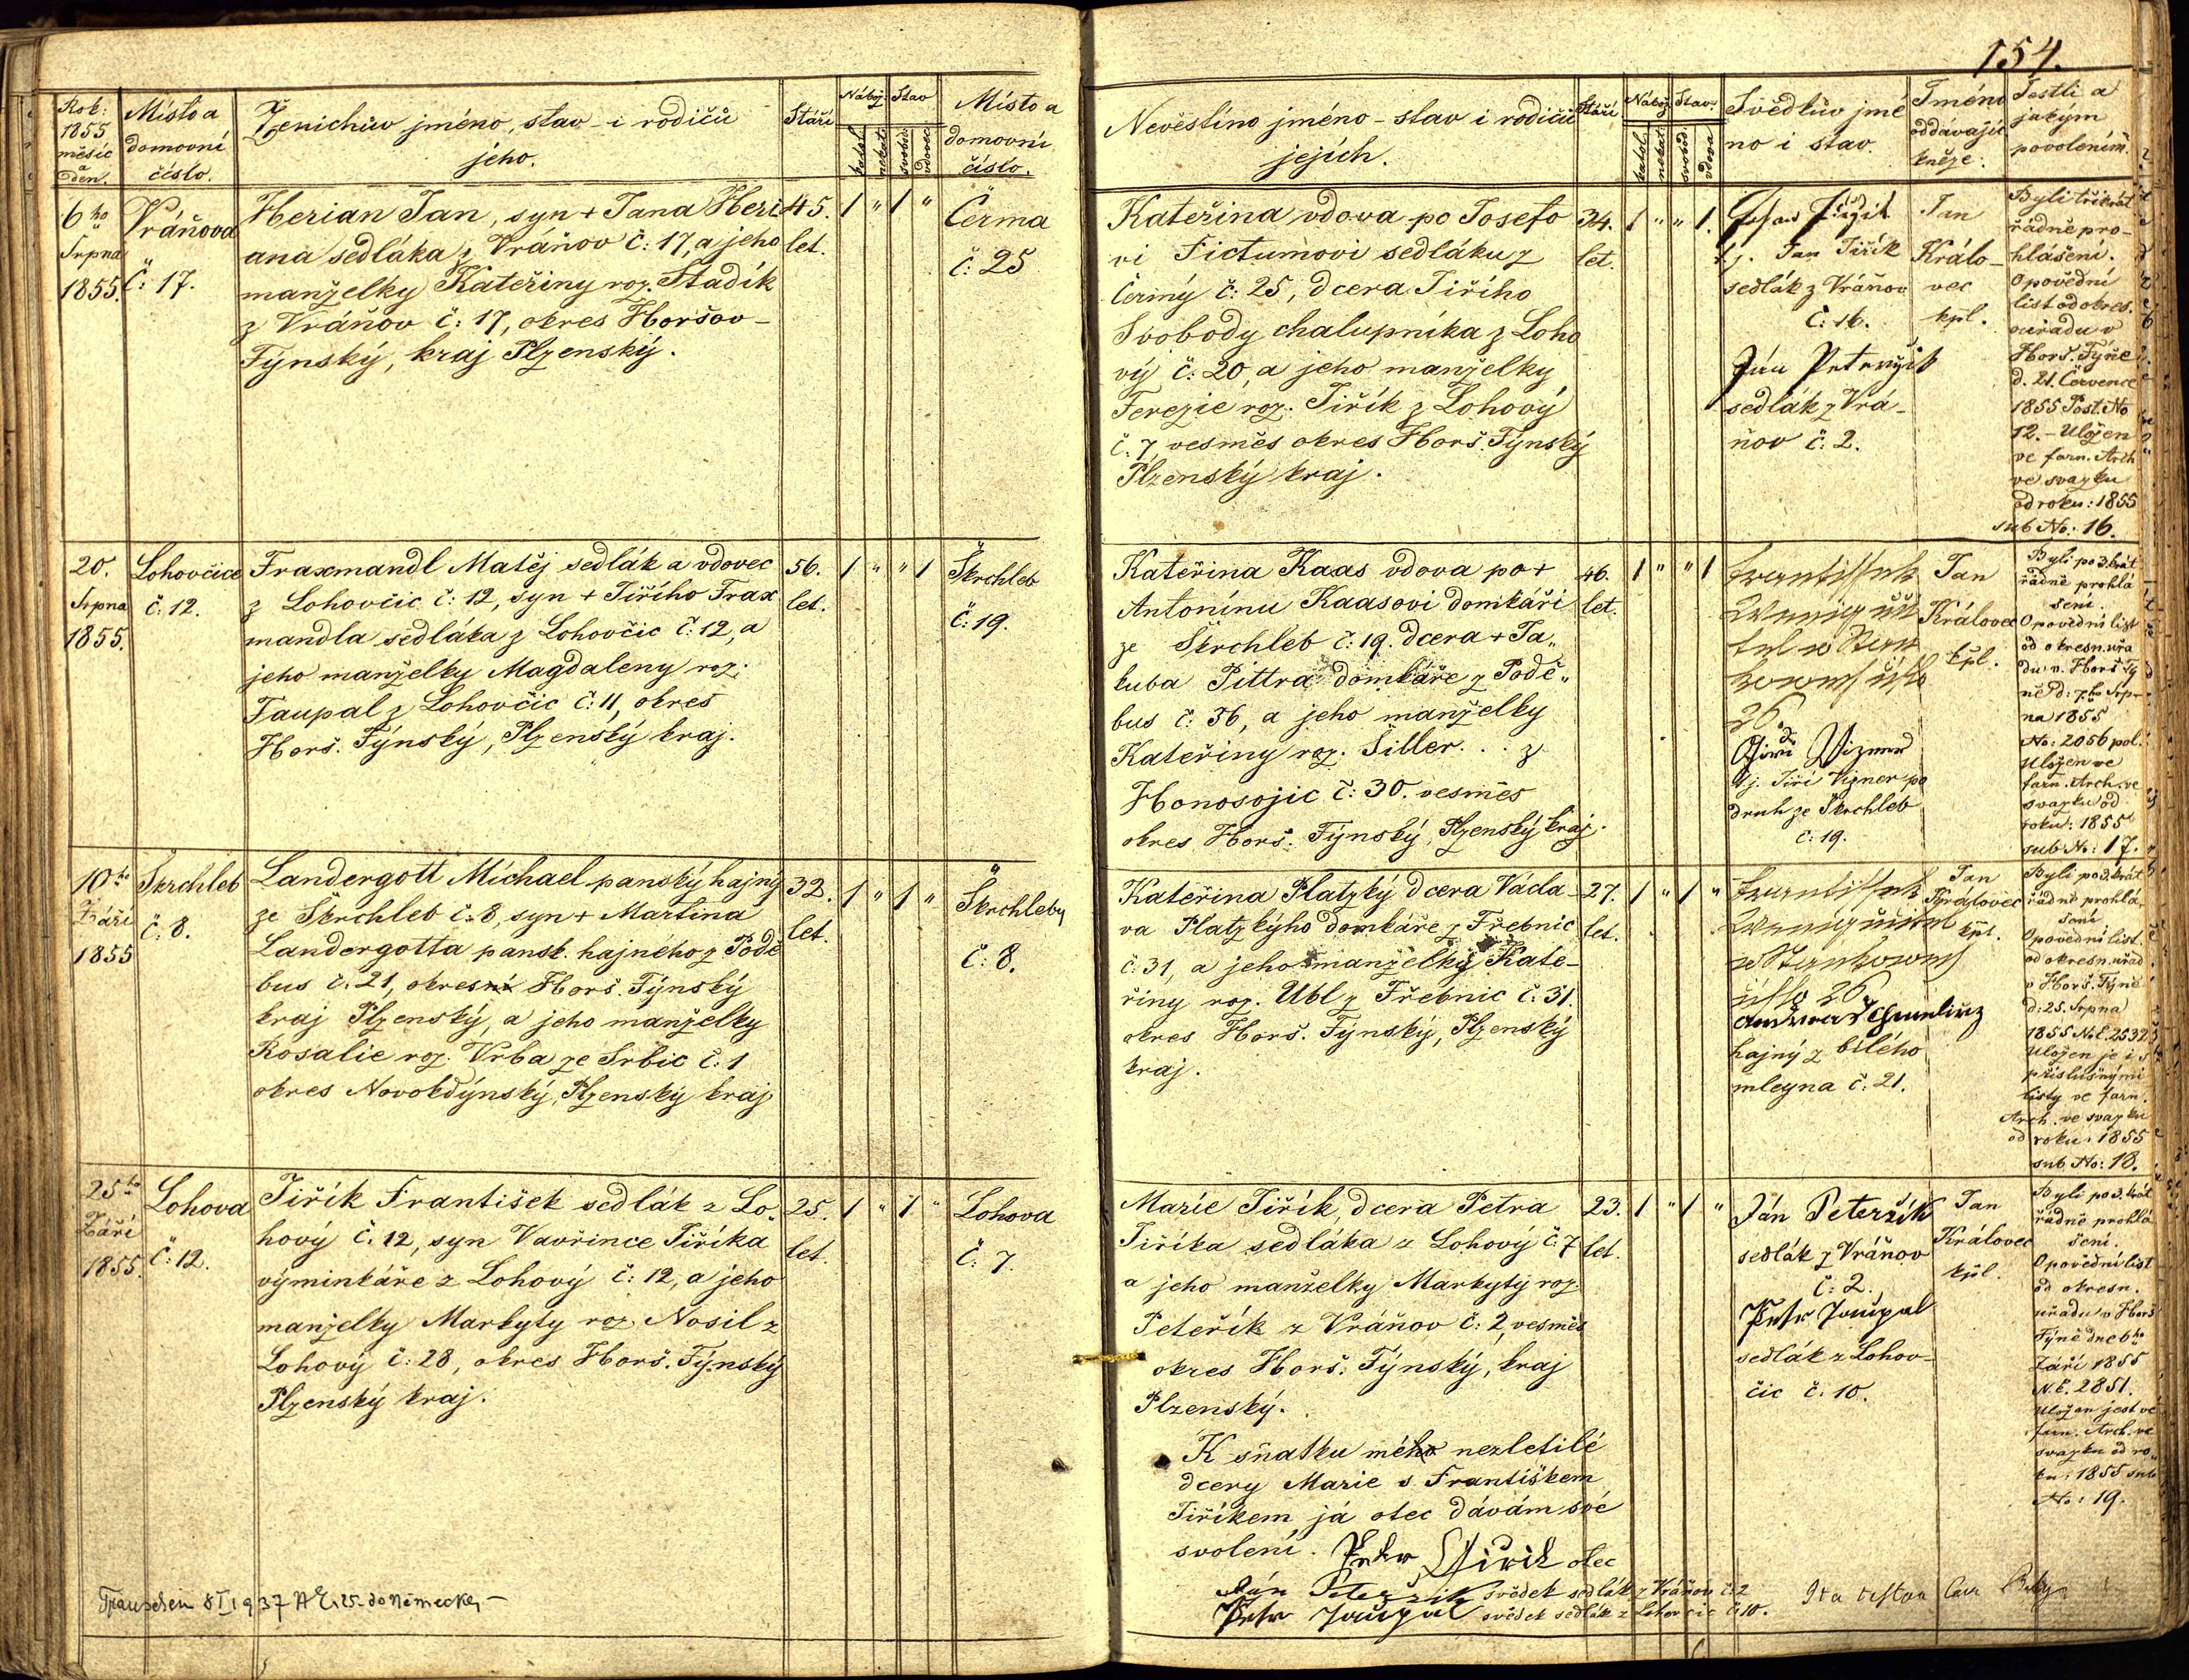 154.
Rok:
1855
měsíc
a
den.
Místo a
domovní
číslo.
Ženichův jméno, stav - i rodičů
jeho.
Stáří
Nábož. Stav
katol. nekat. svobod. vdovec
Místo a
domovní
číslo.
Nevěstino jméno - stav i rodičů
jejích.
Stáří
Nábož. Stav.
katol. nekat. svobod. vdova
Svědkův jmé
no i stav.
Jméno
oddávajíc
kněze.
Jestli a
jakým
povolením.
6ho
Srpna
1855.
Vráňova
č: 17.
Herian Jan, syn + Jana Heri
ana sedláka z Vráňov č: 17, a jeho
manželky Kateřiny roz. Stadík
z Vráňov č: 17, okres Horšov-
Týnský, kraj Plzenský.
45.
let.
1 " 1 "
Čerma
č: 25
Kateřina vdova po Josefo
vi Fictumovi sedláku z
Čermý č: 25, dcera Jiřího
Svobody chalupníka z Loho
vý č: 20, a jeho manželky
Terezie roz. Jiřík z Lohový
č. 7, vesměs okres Horš. Týnský
Plzenský kraj.
34.
let.
1 " " 1.
t.j. Jan Jiřík
sedlák z Vráňov
č: 16.
Ján Peteržik
sedlák z Vrá-
ňov č: 2.
Jan
Králo-
vec
kpl.
Byli třikrát
řádně pro-
hlášeni.
Opovědní
list od okres.
ouřadu v
Horš. Týně
d. 21. Července
1855 Post. No
12. - Uložen
ve farn. Arch
ve svazku
od roku: 1855
sub No: 16.
20.
Srpna
1855.
Lohovčice
č: 12.
Fraxmandl Matěj sedlák a vdovec
z Lohovčic č: 12, syn + Jiřího Frax
mandla sedláka z Lohovčic č: 12, a
jeho manželky Magdaleny roz:
Taupal z Lohovčic č: 11, okres
Horš. Týnský, Plzenský kraj.
56.
let.
1 " " 1
Škrchleb
č: 19.
Kateřina Kaas vdova po +
Antonínu Kaasovi domkáři
ze Škrchleb č: 19. dcera + Ja„
kuba Pittra domkáře z Podě„
bus č: 36, a jeho manželky
Kateřiny roz. Šiller . . z
Honosojic č: 30. vesměs
okres Horš. Týnský, Plzenský kraj.
46.
let.
1 " " 1
Frantissek
Wenig uči
tel w Stan
kowě čislo
26.
Giří Wizner
t.j. Jiří Vizner po
druh ze Škrchleb
č: 19.
Jan
Královec
kpl.
Byli po 3. krát
řádně prohlá
šeni.
Opovědní list
od okresn. uřa
du v. Horš Tý
ně d: 7ho Srp-
na 1855
No: 2056 pol.
Uložen ve
farn. Arch. ve
svazku od
roku: 1855
sub No: 17.
10ho
Září
1855
Škrchleb
č: 8.
Landergott Michael panský hajný
ze Škrchleb č: 8, syn + Martina
Landergotta pansk. hajného z Podě
bus č: 21, okres Horš. Týnský
kraj Plzenský, a jeho manželky
Rosalie roz. Vrba ze Srbic č: 1
okres Novokdýnský, Plzenský kraj
32.
let.
1 " 1 "
Škrchleby
č: 8.
Kateřina Platzký dcera Václa-
va Platzkýho domkáře z Třebnic
č: 31, a jeho manželky Kate-
řiny roz. Ubl z Třebnic č: 31.
okres Horš. Týnský, Plzenský
kraj.
27.
let.
1 " 1 "
Frantissek
Wenig učitel
w Stankowě
čislo 26
hajný z bílého
mleyna č: 21.
Jan
Královec
kpl.
Byli po 3. krát
řádně prohlá
šeni
Opovědní list
od okresn. uřad
v Horš. Týně
d: 25. Srpna
1855 N.E. 2532
Uložen je i s
příslušnými
listy ve farn.
Arch. ve svazku
od roku: 1855
sub No: 18.
25ho
Září
1855.
Lohova
č: 12.
Jiřík František sedlák z Lo„
hový č: 12, syn Vavřince Jiříka
výminkáře z Lohový č: 12, a jeho
manželky Markyty roz. Nosil z
Lohový č: 28, okres Horš. Týnský
Plzenský kraj.
25.
let.
1 " 1 "
Lohova
č: 7.
Marie Jiřík, dcera Petra
Jiříka sedláka z Lohový č: 7
a jeho manželky Markyty roz.
Peteřík z Vráňov č: 2, vesměs
okres Horš. Týnský, kraj
Plzenský.
23.
let.
1 " 1 "
Ján Peteržik
sedlák z Vráňov
č: 2.
Petr Taupal
sedlák z Lohov-
čic č: 10.
Jan
Královec
kpl.
Byli po 3. krát
řádně prohlá
šeni.
Opovědní list
od okresn.
uřadu v Horš
Týně dne 6ho
Září 1855
N.E. 2851.
Uložen jest ve
farn. Arch. ve
svazku od ro„
ku: 1855 sub
No: 19.
K sňatku mého nezletilé
dcery Marie s Františkem
Jiříkem já otec dávám své
svolení. Petr Giřik otec
Ján Peteržik svědek sedlák z Vráňov č: 2
Petr Taupal svědek sedlák z Lohovčic č: 10.
Trauschein 8/I 1937 do Německa, -